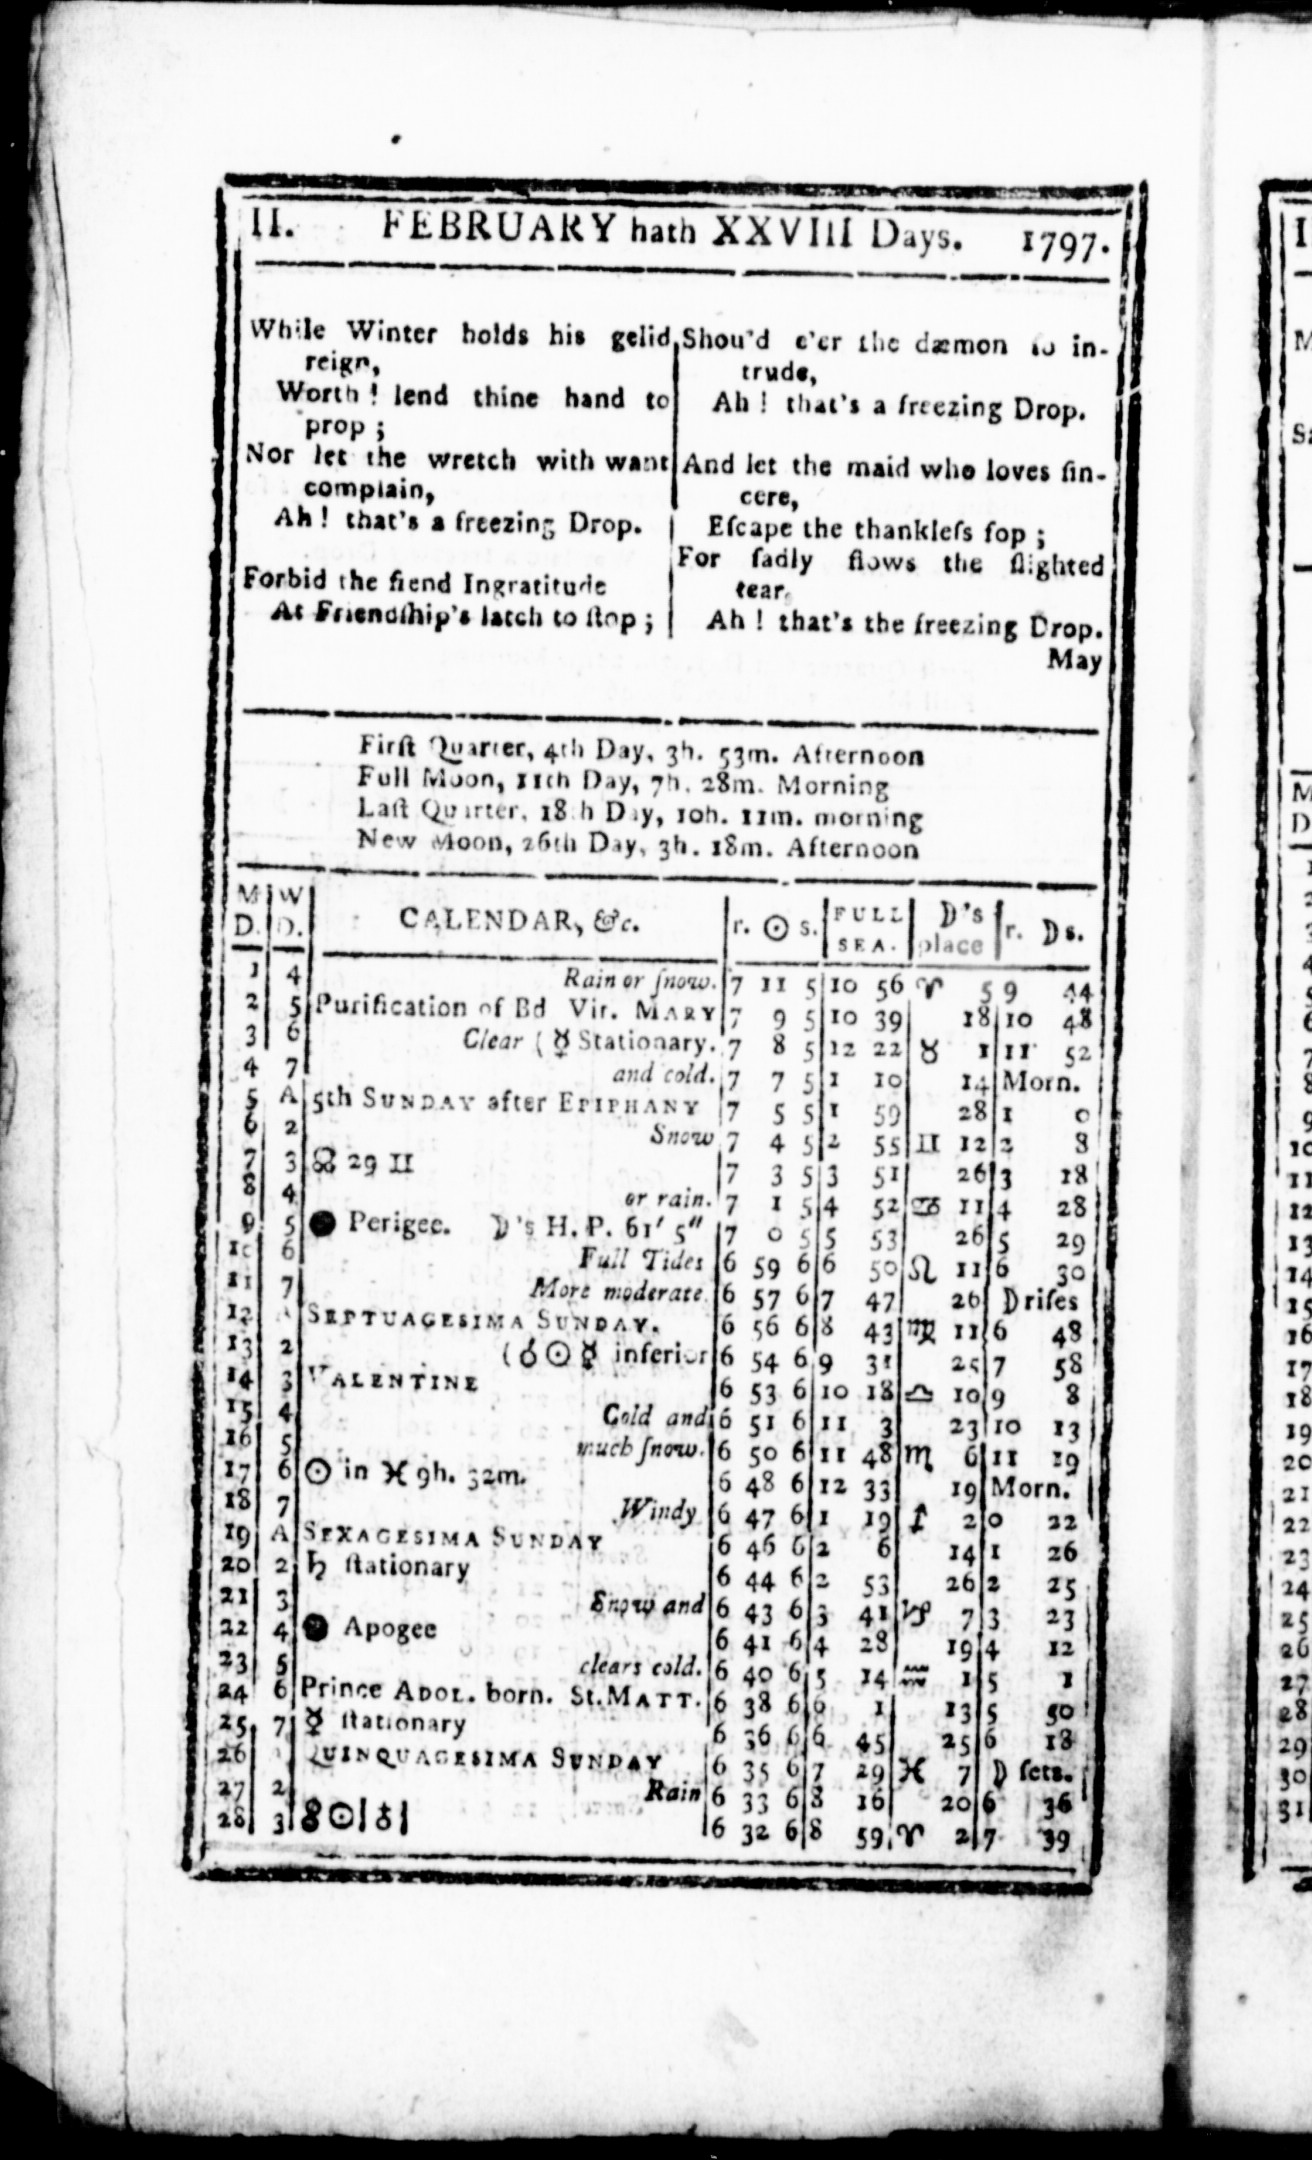 II. FEBRUARY hath XXVIII Days. 1797.
While Winter holds his gelid
reign,
Worth! lend thine hand to
prop;
Nor let the wretch with want
complain,
Ah! that's a freezing Drop.
Forbid the fiend Ingratitude
At Friendſhip's latch to ſtop;
Shou'd e'er the dæmon to in-
trude,
Ah! that's a freezing Drop.
And let the maid who loves ſin-
cere,
Eſcape the thankleſs fop;
For ſadly flows the ſlighted
tear,
Ah! that's the freezing Drop.
May
Firſt Quarter, 4th Day, 3h. 53m. Afternoon
Full Moon, 11th Day, 7h. 28m. Morning
Laſt Quarter, 18th Day, 10h. 11m. morning
New Moon, 26th Day, 3h. 18m. Afternoon
M D. W D. CALENDAR, &c. r. ☉ s. FULL SEA. ☽'s place r. ☽ s.
1 4 Rain or ſnow. 7 11 5 10 56 ♈ 5 9 44
2 5 Purification of Bd Vir. MARY 7 9 5 10 39 18 10 48
3 6 Clear ( ☿ Stationary. 7 8 5 12 22 ♉ 1 11 52
4 7 and cold. 7 7 5 1 10 14 Morn.
5 A 5th SUNDAY after EPIPHANY 7 5 5 1 59 28 1 0
6 2 Snow 7 4 5 2 55 ♊ 12 2 8
7 3 ☊ 29 ♊ 7 3 5 3 51 26 3 18
8 4 or rain. 7 1 5 4 52 ♋ 11 4 28
9 5 ● Perigee. ☽'s H. P. 61′ 5″ 7 0 5 5 53 26 5 29
10 6 Full Tides 6 59 6 6 50 ♌ 11 6 30
11 7 More moderate. 6 57 6 7 47 26 ☽ riſes
12 A SEPTUAGESIMA SUNDAY. 6 56 6 8 43 ♍ 11 6 48
13 2 ( ☌ ☉ ☿ inferior 6 54 6 9 31 25 7 58
14 3 VALENTINE 6 53 6 10 18 ♎ 10 9 8
15 4 Cold and 6 51 6 11 3 23 10 13
16 5 much ſnow. 6 50 6 11 48 ♏ 6 11 19
17 6 ☉ in ♓ 9h. 32m. 6 48 6 12 33 19 Morn.
18 7 Windy 6 47 6 1 19 ♐ 2 0 22
19 A SEXAGESIMA SUNDAY 6 46 6 2 6 14 1 26
20 2 ♄ ſtationary 6 44 6 2 53 26 2 25
21 3 Snow and 6 43 6 3 41 ♑ 7 3 23
22 4 ● Apogee 6 41 6 4 28 19 4 12
23 5 clears cold. 6 40 6 5 14 ♒ 1 5 1
24 6 Prince ADOL. born. St. MATT. 6 38 6 6 1 13 5 50
25 7 ☿ ſtationary 6 36 6 6 45 25 6 18
26 QUINQUAGESIMA SUNDAY 6 35 6 7 29 ♓ 7 ☽ ſets.
27 2 Rain 6 33 6 8 16 20 6 36
28 3 ☉ 6 32 6 8 59 ♈ 2 7 39